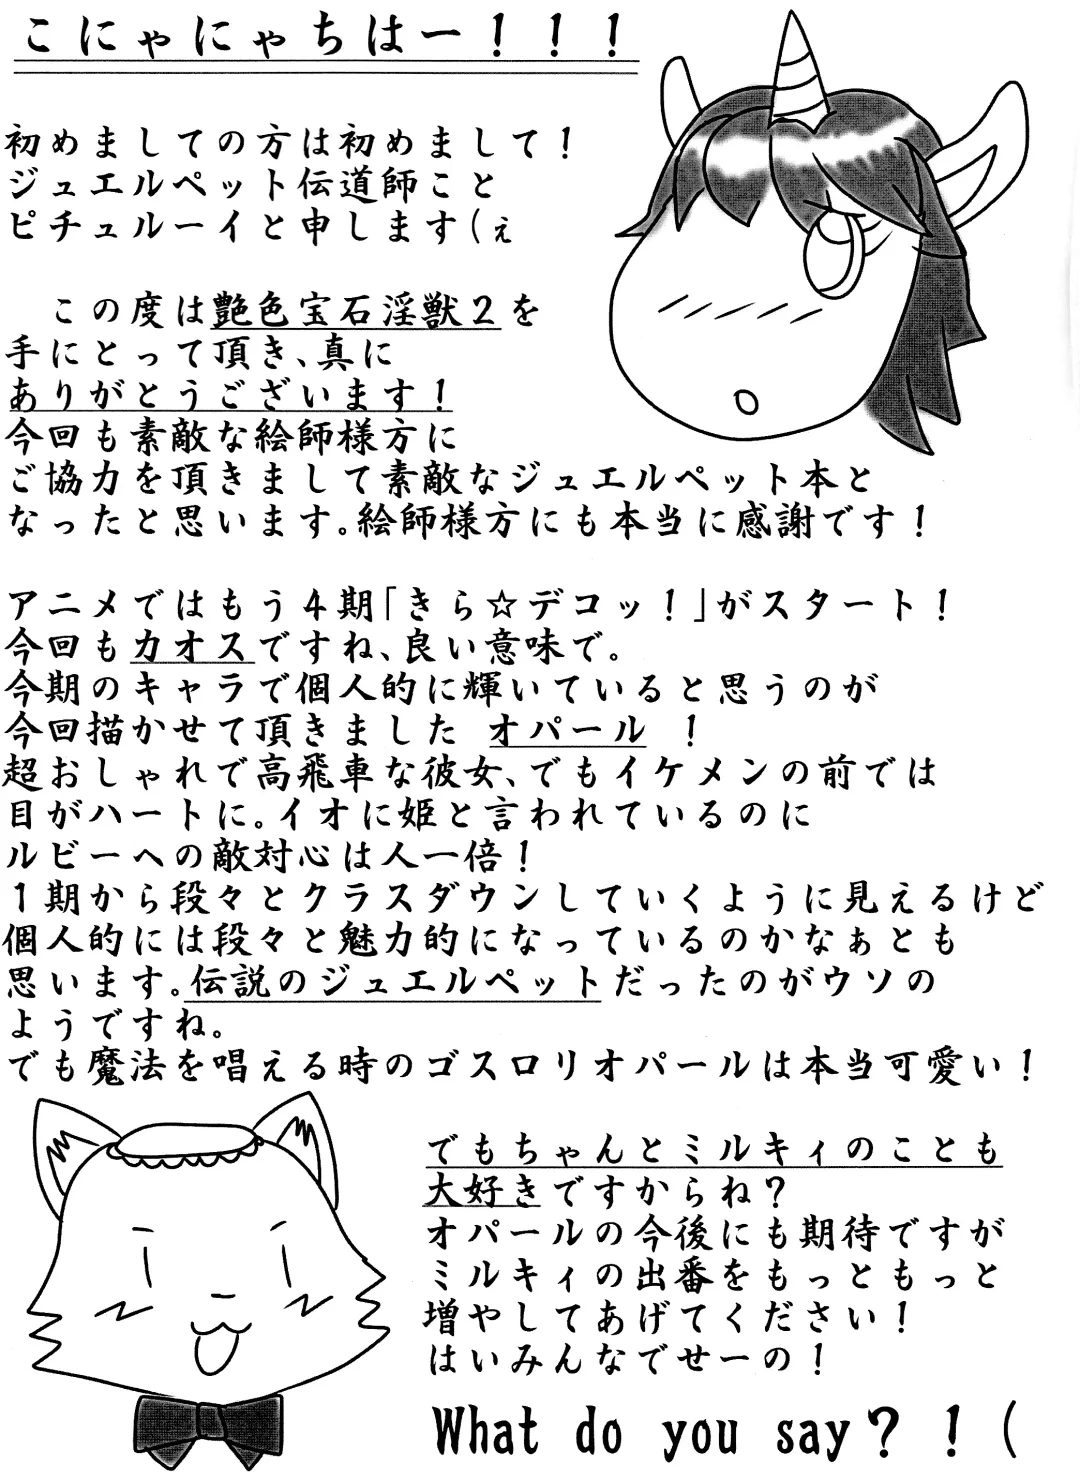 こにゃにゃちはー！！！
初めましての方は初めまして！
ジュエルペット伝道師こと
ピチュルーイと申します(ぇ
この度は艶色宝石淫獣２を
手にとって頂き、真に
ありがとうございます！
今回も素敵な絵師様方に
ご協力を頂きまして素敵なジュエルペット本と
なったと思います。絵師様方にも本当に感謝です！
アニメではもう４期「きら☆デコッ！」がスタート！
今回もカオスですね、良い意味で。
今期のキャラで個人的に輝いていると思うのが
今回描かせて頂きました オパール ！
超おしゃれで高飛車な彼女、でもイケメンの前では
目がハートに。イオに姫と言われているのに
ルビーへの敵対心は人一倍！
１期から段々とクラスダウンしていくように見えるけど
個人的には段々と魅力的になっているのかなぁとも
思います。伝説のジュエルペットだったのがウソの
ようですね。
でも魔法を唱える時のゴスロリオパールは本当可愛い！
でもちゃんとミルキィのことも
大好きですからね？
オパールの今後にも期待ですが
ミルキィの出番をもっともっと
増やしてあげてください！
はいみんなでせーの！
What do you say？！(